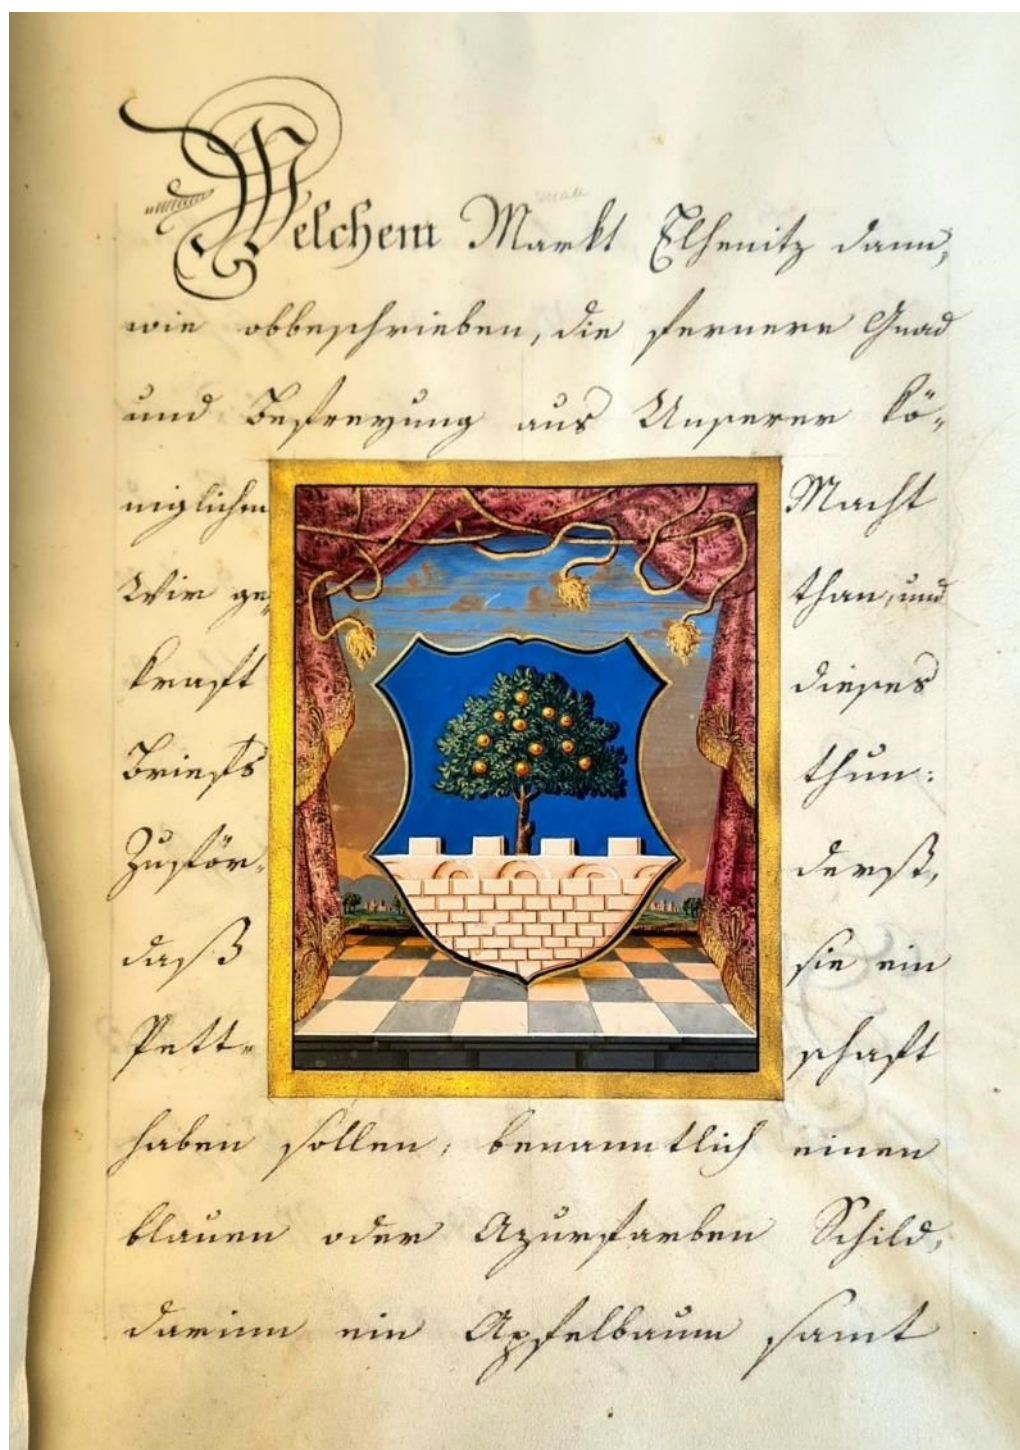 Welchem Markt Elhenitz dann,
wie obbeschrieben, die fernere Gnad
und Befreyung aus Unserer kö-
niglichen Macht
Wir ge- than, und
kraft dieses
Briefs thun:
Zuför- derst,
daß sie ein
Pett- schaft
haben sollen; benanntlich einen
blauen oder Azurfarben Schild,
darinn ein Apfelbaum samt